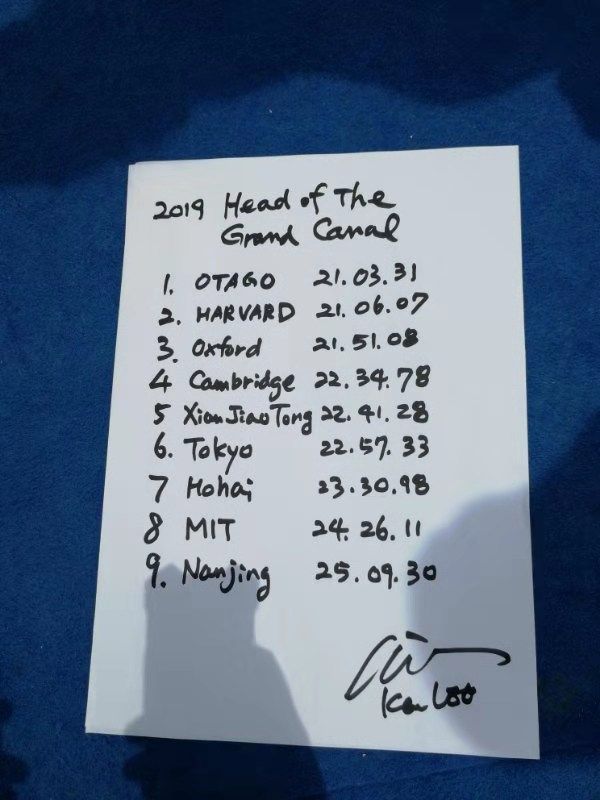 2019 Head of The
Grand Canal
1. OTAGO 21.03.31
2. HARVARD 21.06.07
3. Oxford 21.51.08
4 Cambridge 22.34.78
5 XianJiaoTong 22.41.28
6. Tokyo 22.57.33
7 Hohai 23.30.98
8 MIT 24.26.11
9. Nanjing 25.09.30